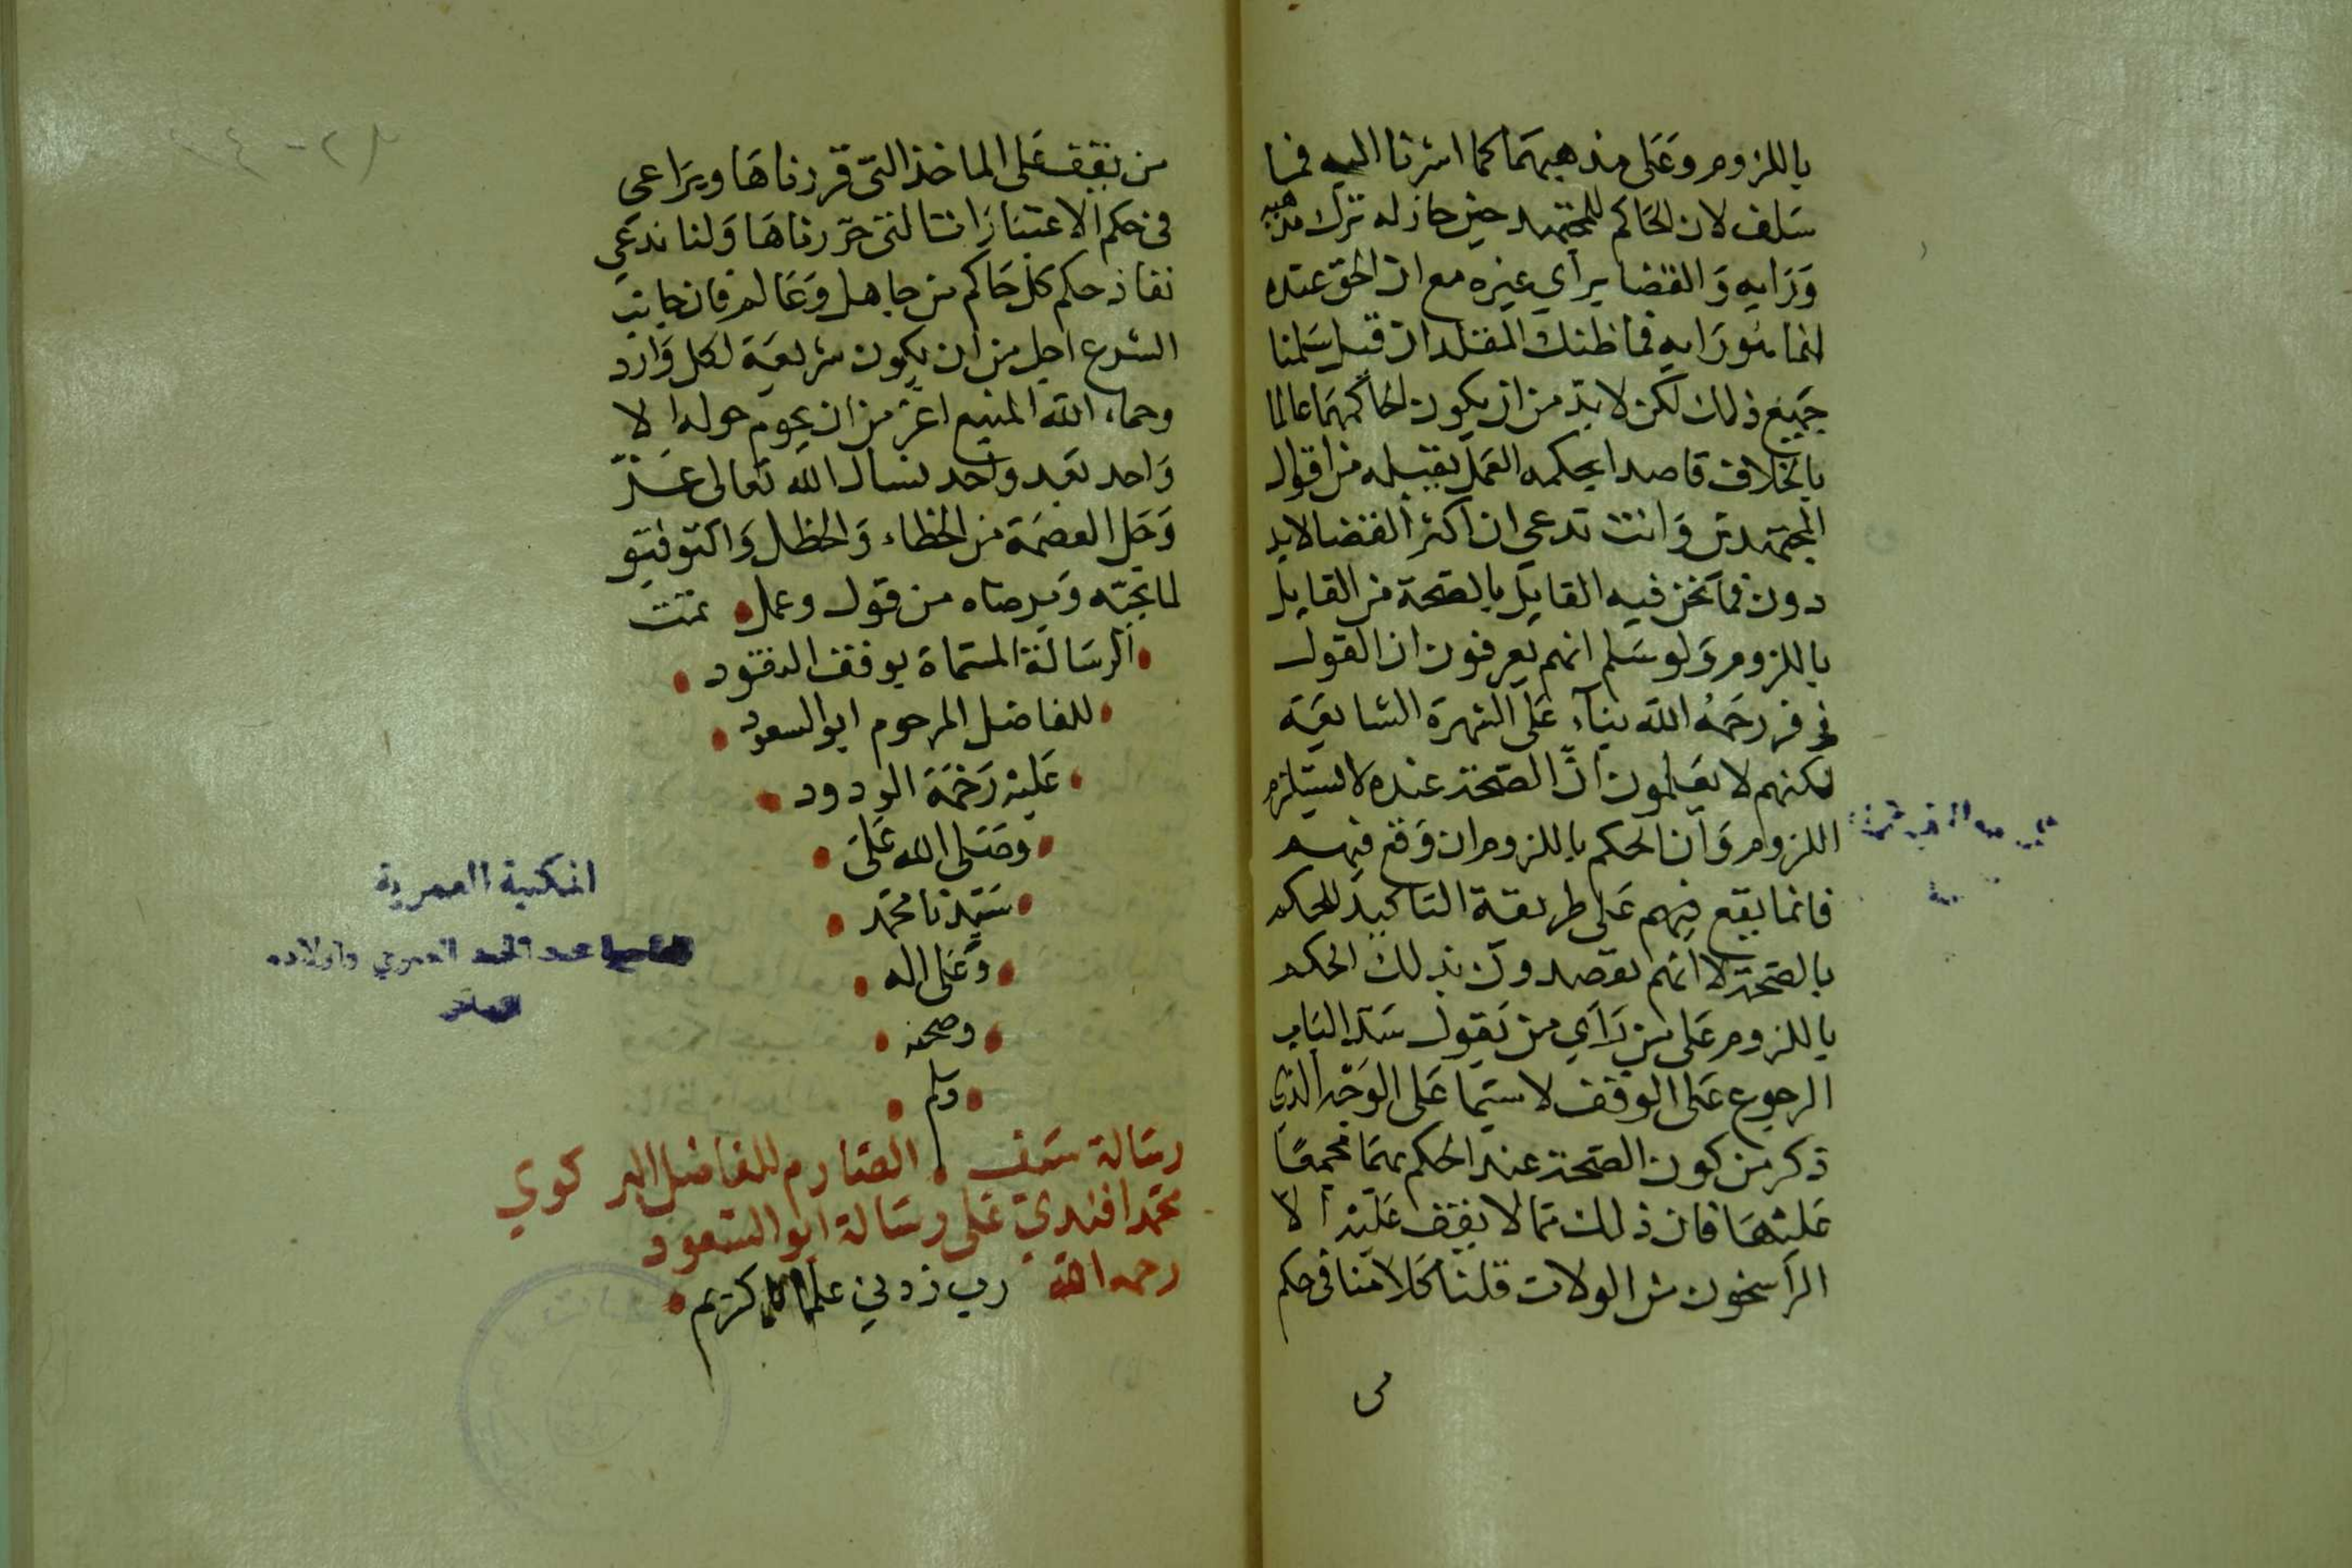 باللزوم وعلى مذهبهما كما اشرنا اليه فيما
سلف لان الحاكم المجتهد حين جاز له ترك مذهبه
ورايه والقضا براي غيره مع ان الحق عنده
انما هو رايه فما ظنك المقلد ان قيل سلمنا
جميع ذلك لكن لا بد من ان يكون الحاكم بهما عالما
بالخلاف قاصدا بحكمه العمل بقيله من اقوال
المجتهدين وانت تدعي ان اكثر القضا لا يد
دون فيما نحن فيه القايل بالصحة من القايل
باللزوم ولو سلم انهم يعرفون ان القول
في زفر رحمه الله بناء على الشهرة الشايعة
لكنهم لا يعلمون ان الصحة عنده لا تستلزم
اللزوم وان الحكم باللزوم ان وقع فيهم
فانما يقع فيهم على طريقة التاكيد للحكم
بالصحة لا انهم يقصدون بذلك الحكم
باللزوم على من راي من يقول سد الباب
الرجوع على الوقف لا سيما على الوجه الذي
ذكر من كون الصحة عند الحكم بهما مجمعا
عليها فان ذلك مما لا يقف عليه الا
الراسخون من الولات قلنا كلامنا في حكم
من يقف على الماخذ التي قررناها ويراعي
في حكم الاعتبارات التي حررناها ولنا ندعي
نفاذ حكم كل حاكم من جاهل وعالم فان جانب
الشرع اجل من ان يكون شريعة لكل وارد
وحماء الله المنيع اعز من ان يحوم حوله الا
واحد بعد واحد نسال الله تعالى عز
وجل العصمة من الخطاء والخطل والتوفيق
لما يحبه ويرضاه من قول وعمل تمت
الرسالة المسماة بوقف النقود
للفاضل المرحوم ابو السعود
عليه رحمة الودود
وصلى الله على
سيدنا محمد
وعلى اله
وصحبه
وسلم
رسالة سيف الصارم للفاضل البركوي
محمد افندي على رسالة ابو السعود
رحمه الله رب زدني علما كريم
المكتبة العمرية
العمري واولاده